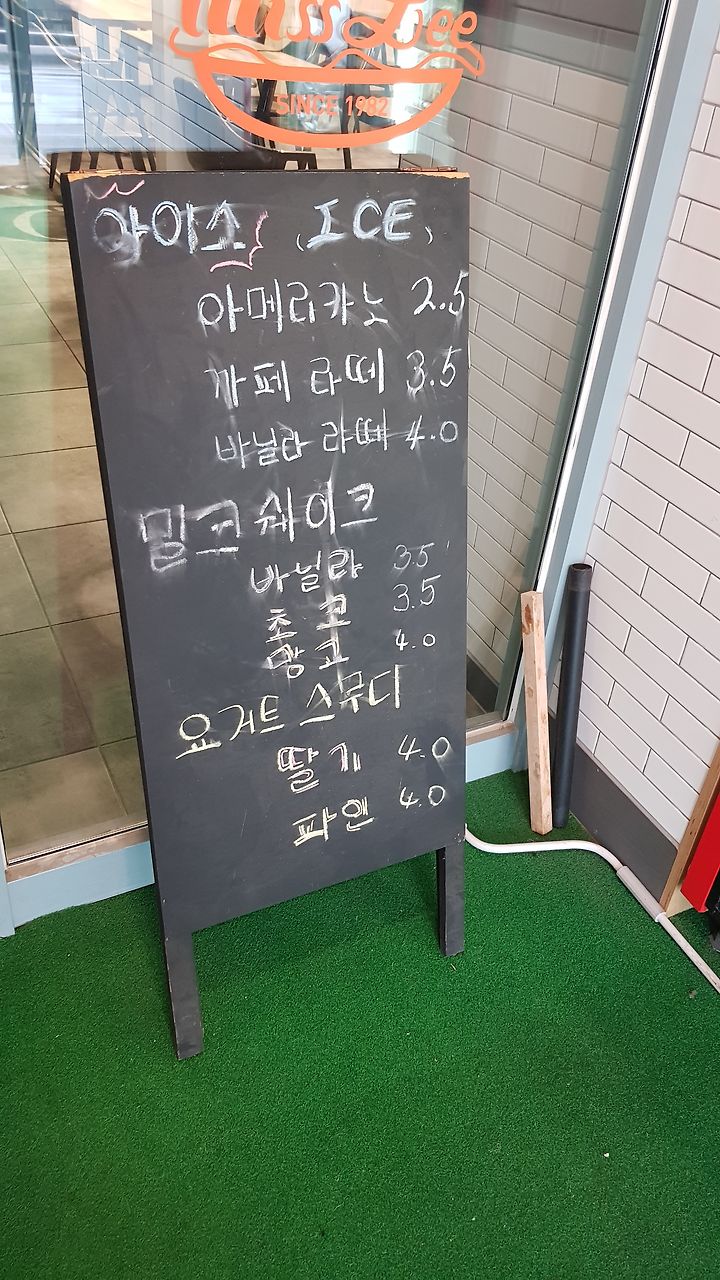 Miss Lee
SINCE 1982
아이스 (ICE)
아메리카노 2.5
까페 라떼 3.5
바닐라 라떼 4.0
밀크 쉐이크
바닐라 3.5
초코 3.5
망고 4.0
요거트 스무디
딸기 4.0
파인 4.0